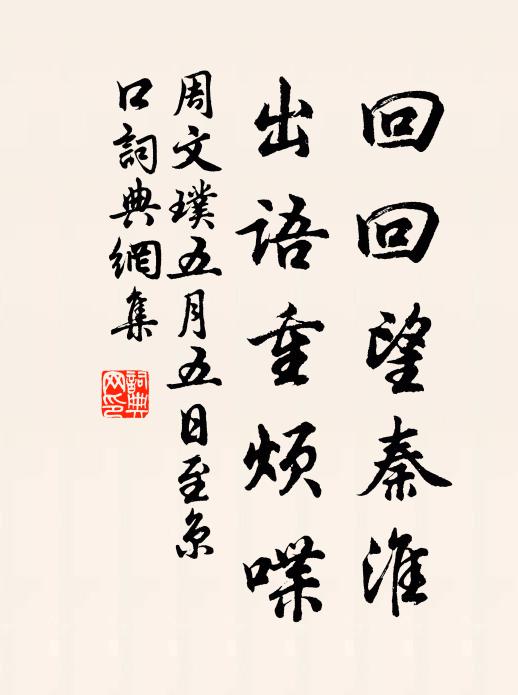 回回望秦淮
出語重煩喋
周文璞五月五日至京
口詞典網集
詞典
网印